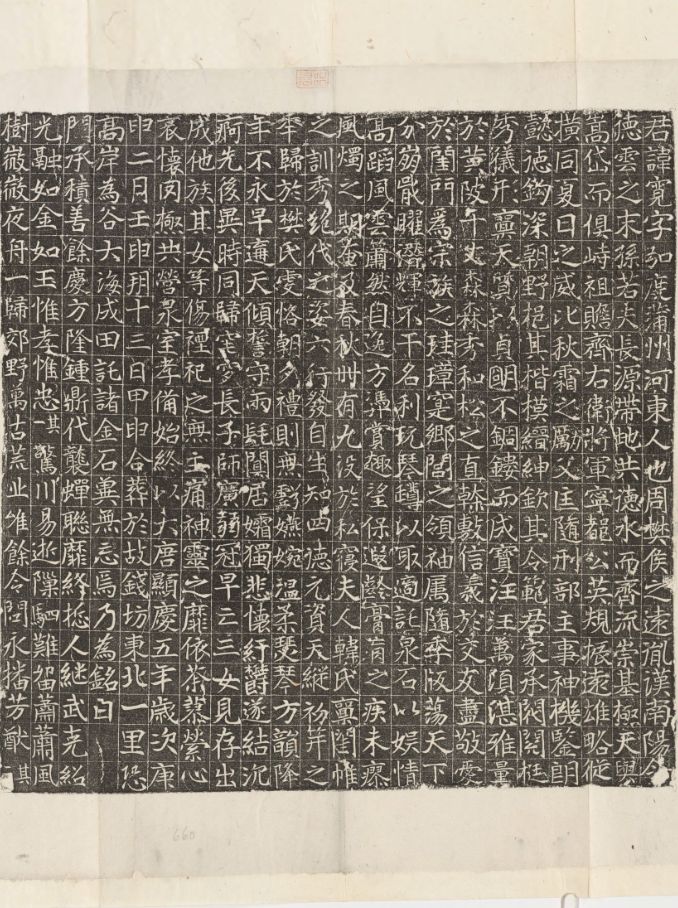 君諱寬字弘度蒲州河東人也周樊侯之遠胤漢南陽令
德雲之末孫若夫長源帶地共德水而齊流崇基極天與
嵩岱而俱峙祖贍齊右衛將軍寧都公英規振遠雄略從
橫同夏日之威比秋霜之厲父匡隨刑部主事神機鑒朗
懿德鈎深朝野挹其揩模縉紳欽其令範君家承閥閱挺
秀儀形稟天筭以貞明不錭鏤而成寶汪汪萬頃湛雅量
於黃陂千丈森森秀和松之直榦敷信義於交友盡敬愛
於閨門為宗族之珪璋寔鄉閭之領袖属隨季版蕩天下
分崩戢曜潛輝不干名利玩琴罇以取適託泉石以娛情
高蹈風雲蕭然自逸方憑賞趣望保遐齡膏肓之疾未瘳
風燭之期奄及春秋卌有九役於私寢夫人韓氏稟閨帷
之訓秀絕代之姿六行發自生知四德元資天縱初笄之
年歸於樊氏虔恪朝夕禮則無虧嬿婉温柔瑟琴方韻降
年不永早遷天傾誓守兩髦閒居孀獨悲懷紆欝遂結沉
痾先後異時同歸窀穸長子師廣弱冠早亡三女見存出
成他族其女等傷禋祀之無主痛神靈之靡依荼蓼縈心
哀懷罔極共營泉室孝備始終以大唐顯慶五年歲次庚
申二日壬申朔十三日甲申合葬於故錢坊東北一里恐
高岸為谷大海成田託諸金石冀無忘焉乃為銘曰
門承積善餘慶方隆鍾鼎代襲蟬聯靡終悊人継武光紹
光融如金如玉惟孝惟忠其一驚川易逝隟駟難留蕭蕭風
樹皎皎夜舟一歸郊野萬古荒丘唯餘令問永播芳猷其
660